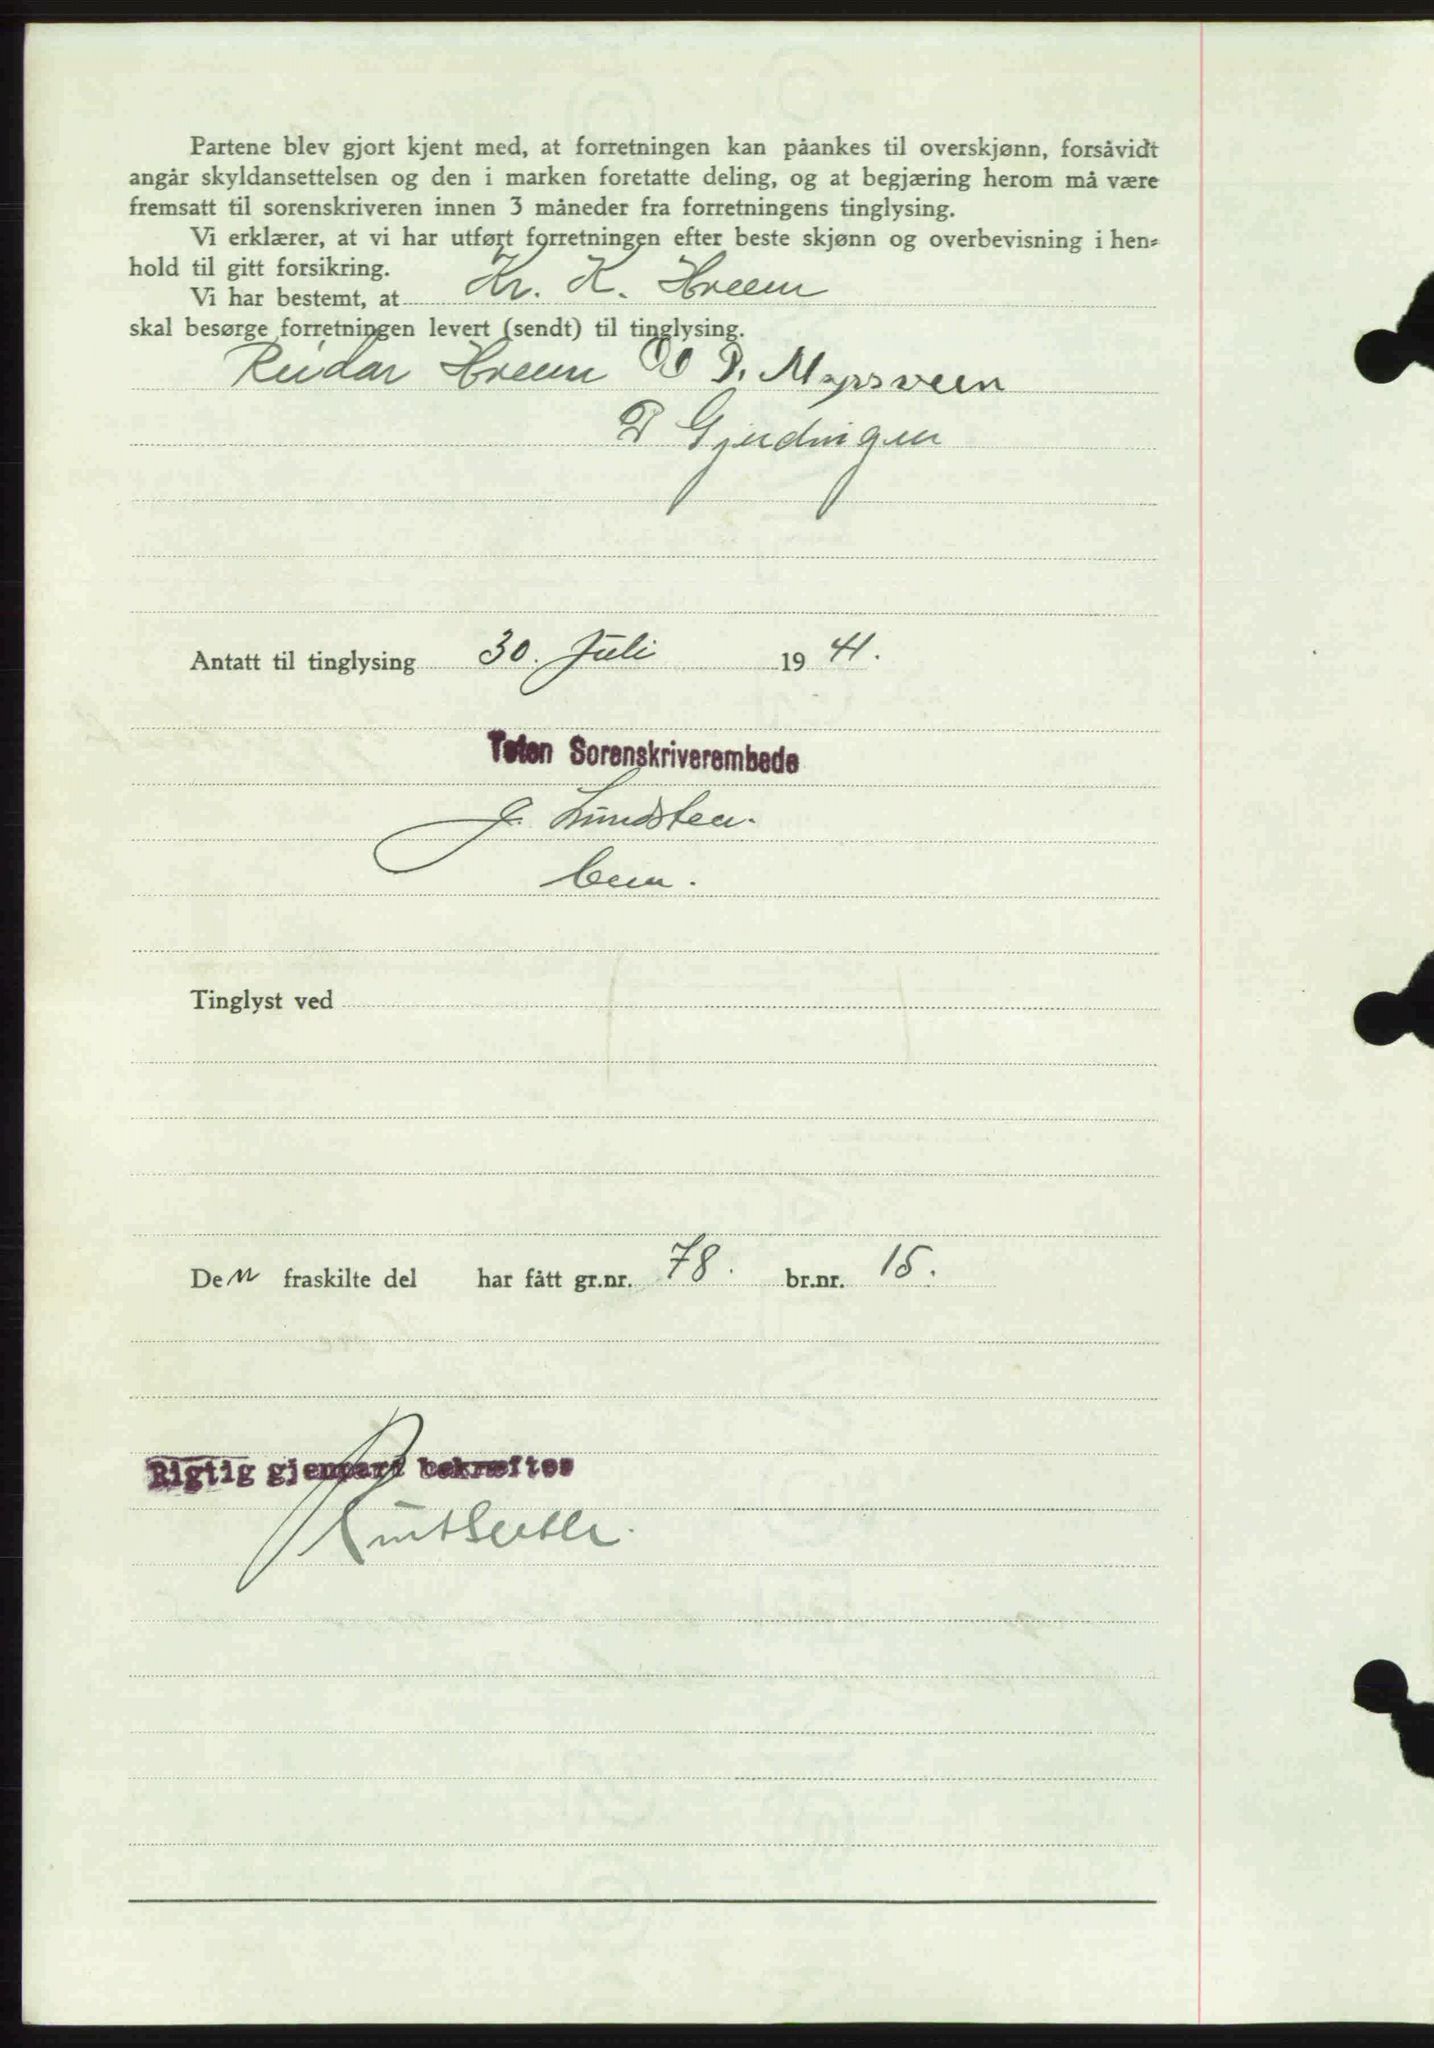 Partene blev gjort kjent med, at forretningen kan påankes til overskjønn, forsåvidt
angår skyldansettelsen og den i marken foretatte deling, og at begjæring herom må være
fremsatt til sorenskriveren innen 3 måneder fra forretningens tinglysing.
Vi erklærer, at vi har utført forretningen efter beste skjønn og overbevisning i hen-
hold til gitt forsikring.
Vi har bestemt, at Kr. K. Hveem
skal besørge forretningen levert (sendt) til tinglysing.
Reidar Hveem O P. Myrsveen
P Gjerdingen
Antatt til tinglysing 30. Juli 1941.
Toten Sorenskriverembede
J. Lundsten.
Tinglyst ved
Den fraskilte del har fått gr.nr. 78. br.nr. 15.
Rigtig gjenpart bekræftes